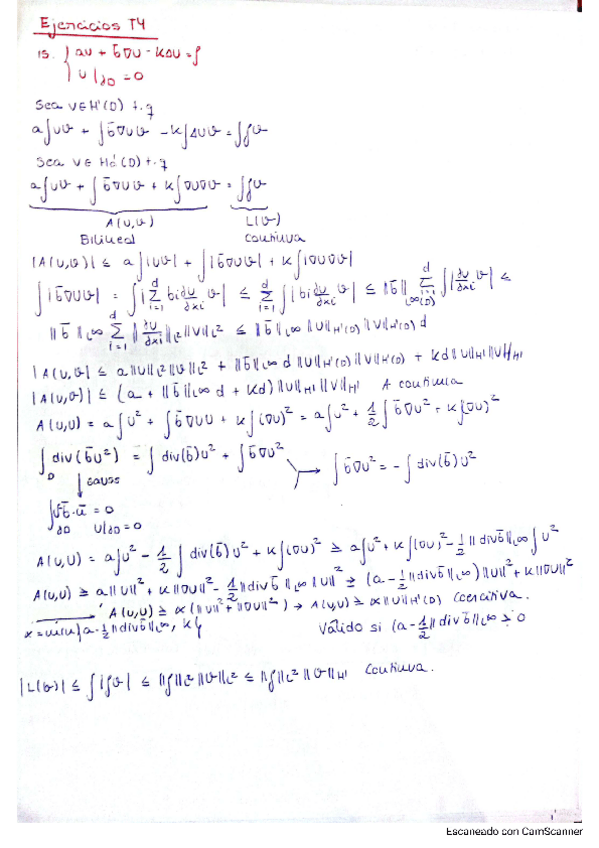 Ejercicios T4
15. { au + b̄∇u - KΔu = f
u|∂D = 0
Sea v ∈ H¹(D) t.q
a∫uv + ∫b̄∇u v - K∫Δu v = ∫fv
Sea v ∈ H₀¹(D) t.q
a∫uv + ∫b̄∇u v + K∫∇u∇v = ∫fv
A(u,v) L(v)
Bilineal continua
|A(u,v)| ≤ a∫|uv| + ∫|b̄∇u v| + K∫|∇u∇v|
∫|b̄∇u v| = ∫|∑_{i=1}^d bi ∂u/∂xi v| ≤ ∑_{i=1}^d ∫|bi ∂u/∂xi v| ≤ ||b̄||_{L∞(D)} ∑_{i=1}^d ∫|∂u/∂xi v| ≤
||b̄||_{L∞} ∑_{i=1}^d ||∂u/∂xi||_{L²} ||v||_{L²} ≤ ||b̄||_{L∞} ||u||_{H¹(D)} ||v||_{H¹(D)} d
|A(u,v)| ≤ a||u||_{L²}||v||_{L²} + ||b̄||_{L∞} d ||u||_{H¹(D)} ||v||_{H¹(D)} + Kd||u||_{H¹}||v||_{H¹}
|A(u,v)| ≤ (a + ||b̄||_{L∞} d + Kd) ||u||_{H¹} ||v||_{H¹} A continua
A(u,u) = a∫u² + ∫b̄∇u u + K∫(∇u)² = a∫u² + 1/2 ∫b̄∇u² + K∫(∇u)²
∫_D div(b̄u²) = ∫div(b̄)u² + ∫b̄∇u² → ∫b̄∇u² = -∫div(b̄)u²
Gauss
∫_{∂D} = 0
u|∂D = 0
A(u,u) = a∫u² - 1/2 ∫div(b̄)u² + K∫(∇u)² ≥ a∫u² + K∫(∇u)² - 1/2 ||div b̄||_{L∞} ∫u²
A(u,u) ≥ a||u||² + K||∇u||² - 1/2 ||div b̄||_{L∞} ||u||² ≥ (a - 1/2 ||div b̄||_{L∞}) ||u||² + K||∇u||²
A(u,u) ≥ α(||u||² + ||∇u||²) → A(u,u) ≥ α||u||²_{H¹(D)} Coercitiva.
α = min{a - 1/2 ||div b̄||_{L∞}, K} Válido si (a - 1/2 ||div b̄||_{L∞} > 0
|L(v)| ≤ ∫|fv| ≤ ||f||_{L²} ||v||_{L²} ≤ ||f||_{L²} ||v||_{H¹} continua.
Escaneado con CamScanner